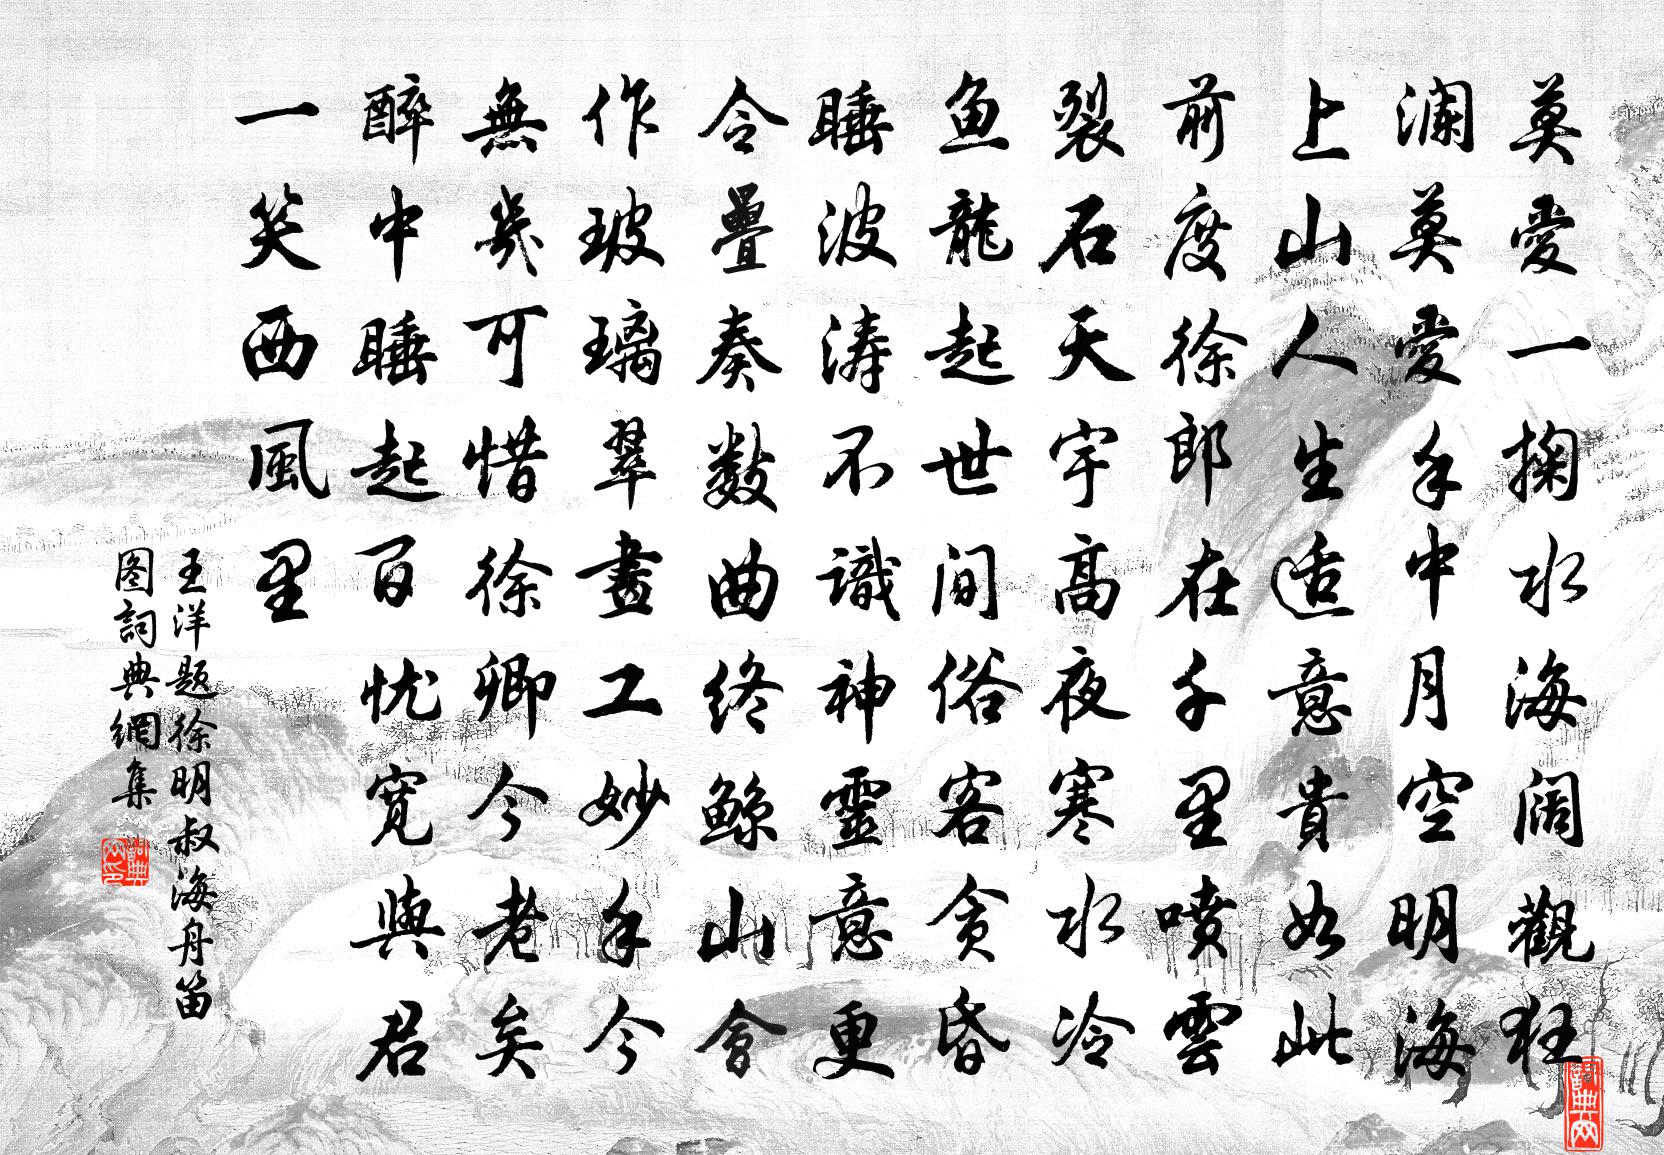 莫愛一掬水海闊觀狂
瀾莫愛手中月空明海
上山人生适意貴如此
前度徐郎在千里噴雲
裂石天宇高夜寒水冷
魚龍起世間俗客貪昏
睡波涛不識神靈意更
令疊奏数曲终鯨山會
作玻璃翠畫工妙手今
無幾可惜徐卿今老矣
醉中睡起百忧寬與君
一笑西風里
王洋题徐明叔海舟笛
图詞典網集
詞典网印
詞典网